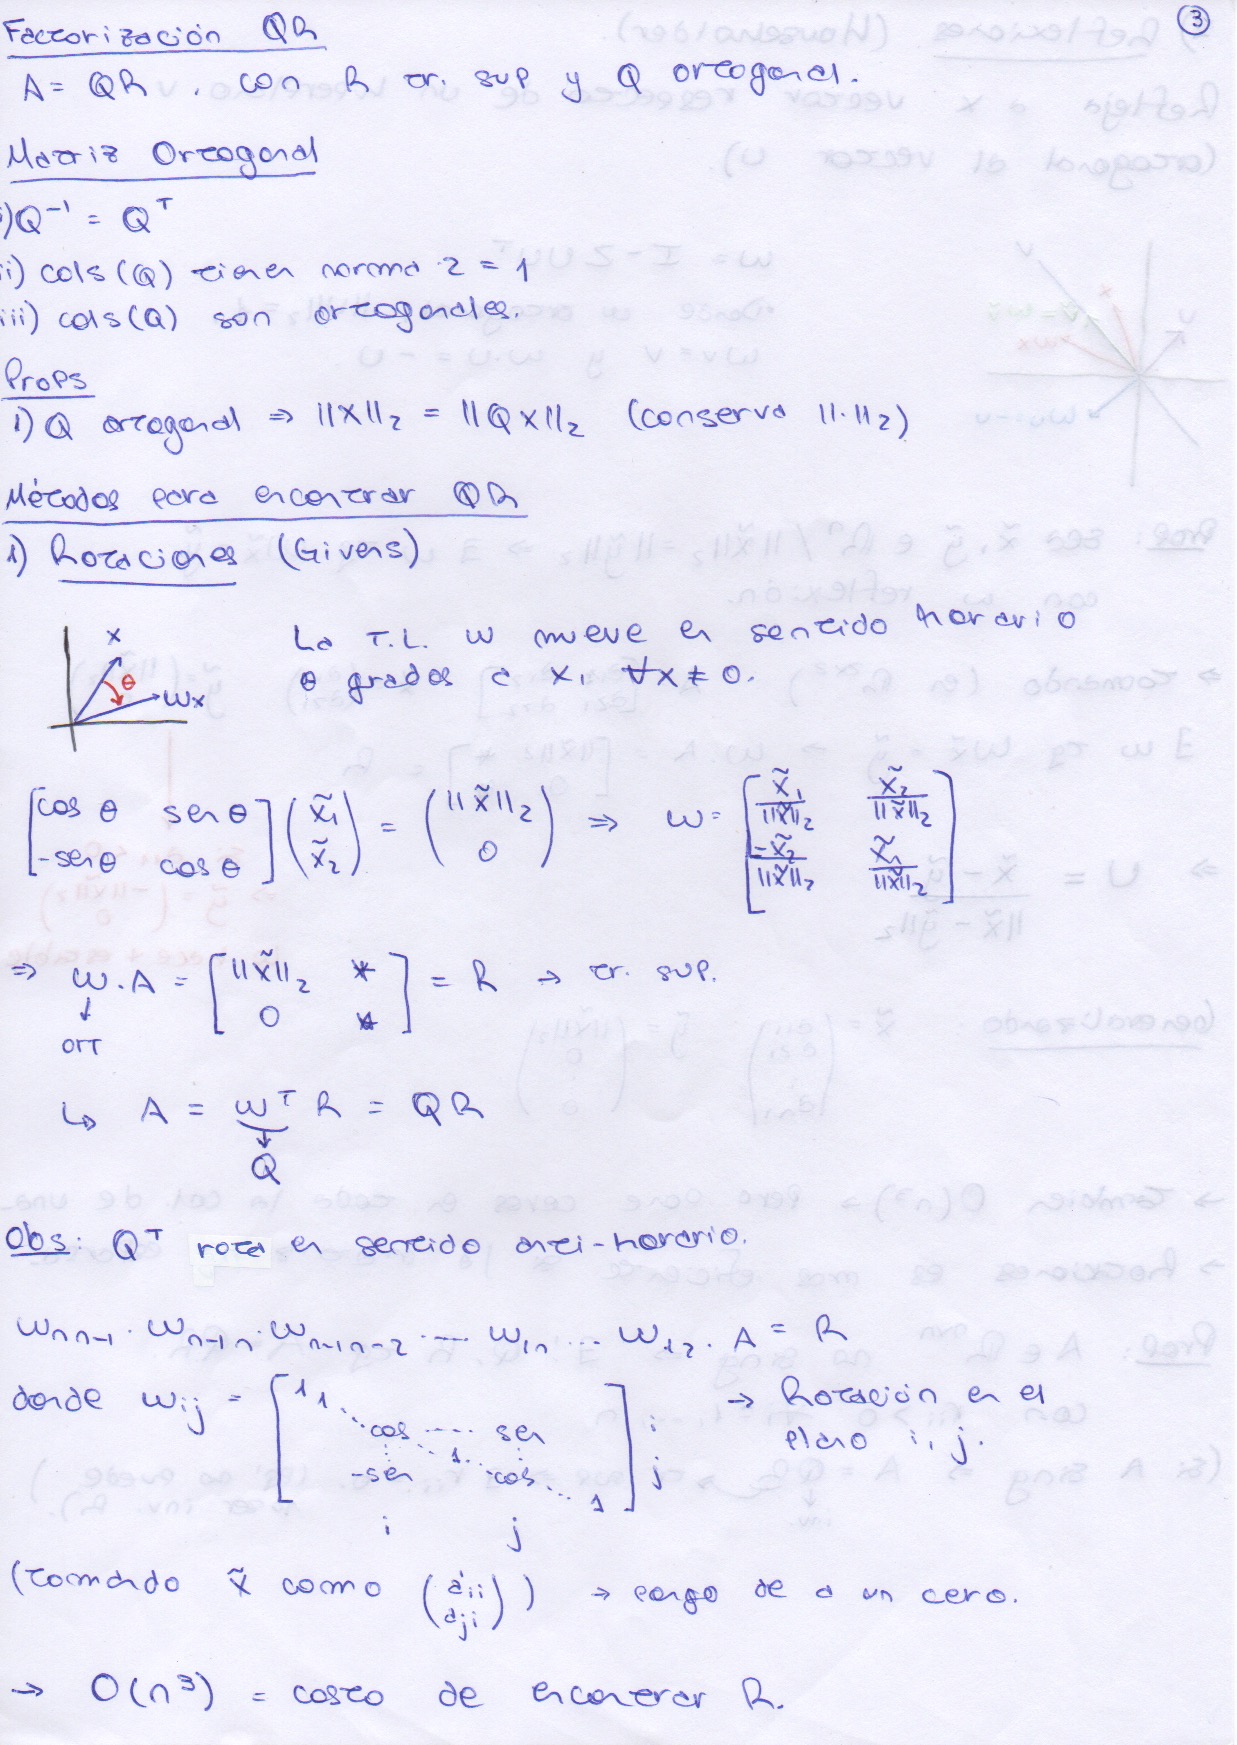 ③
Factorización QR
A = QR, con R tr. sup y Q ortogonal.
Matriz Ortogonal
i) Q⁻¹ = Qᵀ
ii) cols(Q) tienen norma 2 = 1
iii) cols(Q) son ortogonales.
Props
1) Q ortogonal ⇒ ||x||₂ = ||Qx||₂ (conserva ||·||₂)
Métodos para encontrar QR
1) Rotaciones (Givens)
x θ Wx
La T.L. W mueve en sentido horario
θ grados a x, ∀x ≠ 0.
[cos θ sen θ; -sen θ cos θ] (x̃₁; x̃₂) = (||x̃||₂; 0) ⇒ W = [x̃₁/||x̃||₂ x̃₂/||x̃||₂; -x̃₂/||x̃||₂ x̃₁/||x̃||₂]
⇒ W.A = [||x̃||₂ *; 0 *] = R → tr. sup.
↓
ort
↳ A = Wᵀ R = QR
↓
Q
Obs: Qᵀ rota en sentido anti-horario.
Wₙₙ₋₁ . Wₙ₋₁ₙ . Wₙ₋₁ₙ₋₂ .... W₁ₙ ... W₁₂ . A = R
donde Wij = [1 1 ⋱ cos ... sen ⋱ 1 ⋱ -sen cos ⋱ 1] i j → Rotación en el
plano i, j.
i j
(tomando x̃ como (aii; aji)) → pongo de a un cero.
→ O(n³) = costo de encontrar R.